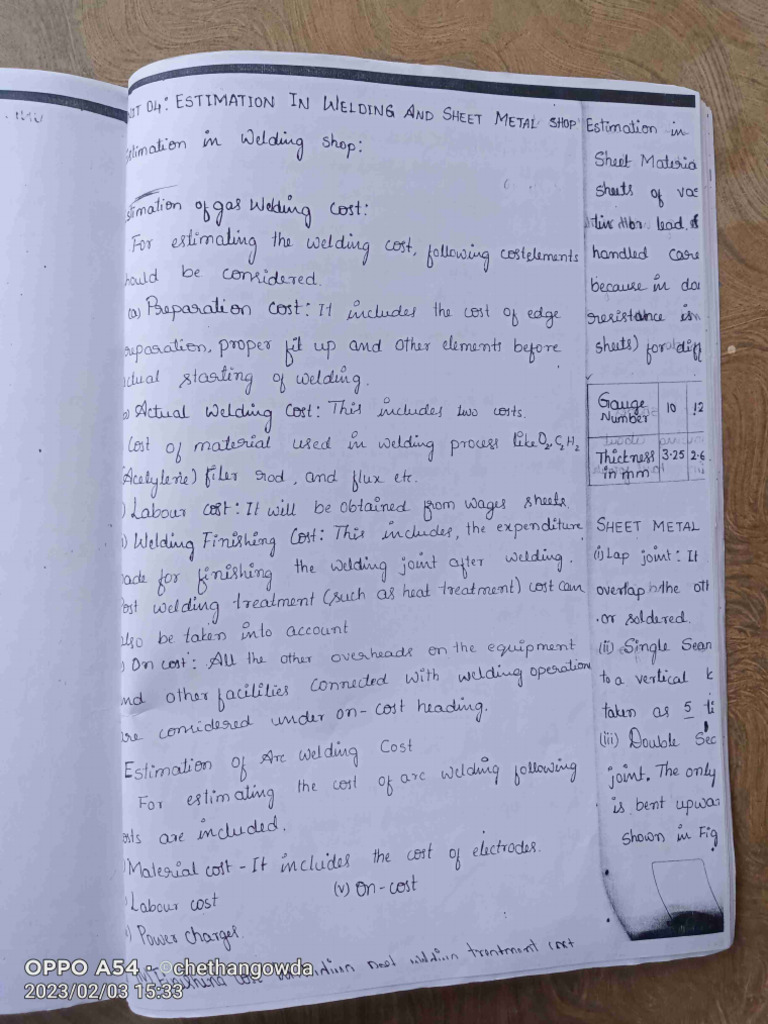 IT 04: ESTIMATION IN WELDING AND SHEET METAL SHOP
stimation in Welding shop:
stimation of gas Welding Cost:
For estimating the welding cost, following cost elements
hould be considered.
(a) Preparation cost: It includes the cost of edge
reparation, proper fit up and other elements before
ctual starting of welding.
) Actual Welding Cost: This includes two costs.
Cost of material used in welding process like O2, C2H2
(Acetylene) filer rod, and flux etc.
) Labour cost: It will be obtained from wages sheets.
) Welding Finishing Cost: This includes, the expenditure
ade for finishing the welding joint after welding.
ost welding treatment (such as heat treatment) cost can
lso be taken into account
) On cost: All the other overheads on the equipment
nd other facilities connected with welding operation
re considered under on-cost heading.
Estimation of Arc welding Cost
For estimating the cost of arc welding following
osts are included.
) Material cost - It includes the cost of electrodes.
) Labour cost (v) On-cost
) Power charges.
cost
Estimation in
Sheet Materia
sheets of va
lead
handled care
because in
resistance is
sheets) for diff
Gauge Number 10 12
Thickness in mm 3.25 2.6
SHEET METAL
(i) Lap joint: It
overlap the ot
or soldered.
(ii) Single Seam
to a vertical
taken as 5 ti
(iii) Double Se
joint. The only
is bent upwa
shown in Fig
OPPO A54 ©chethangowda
2023/02/03 15:33